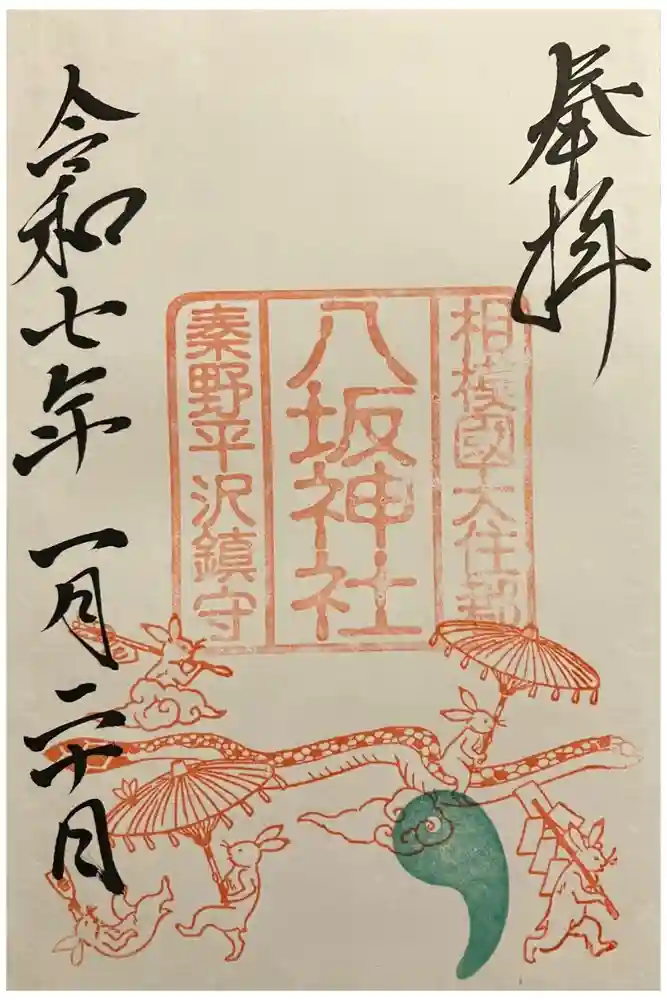 奉拝
相模國大住郡
八坂神社
秦野平沢鎮守
令和七年一月二十日